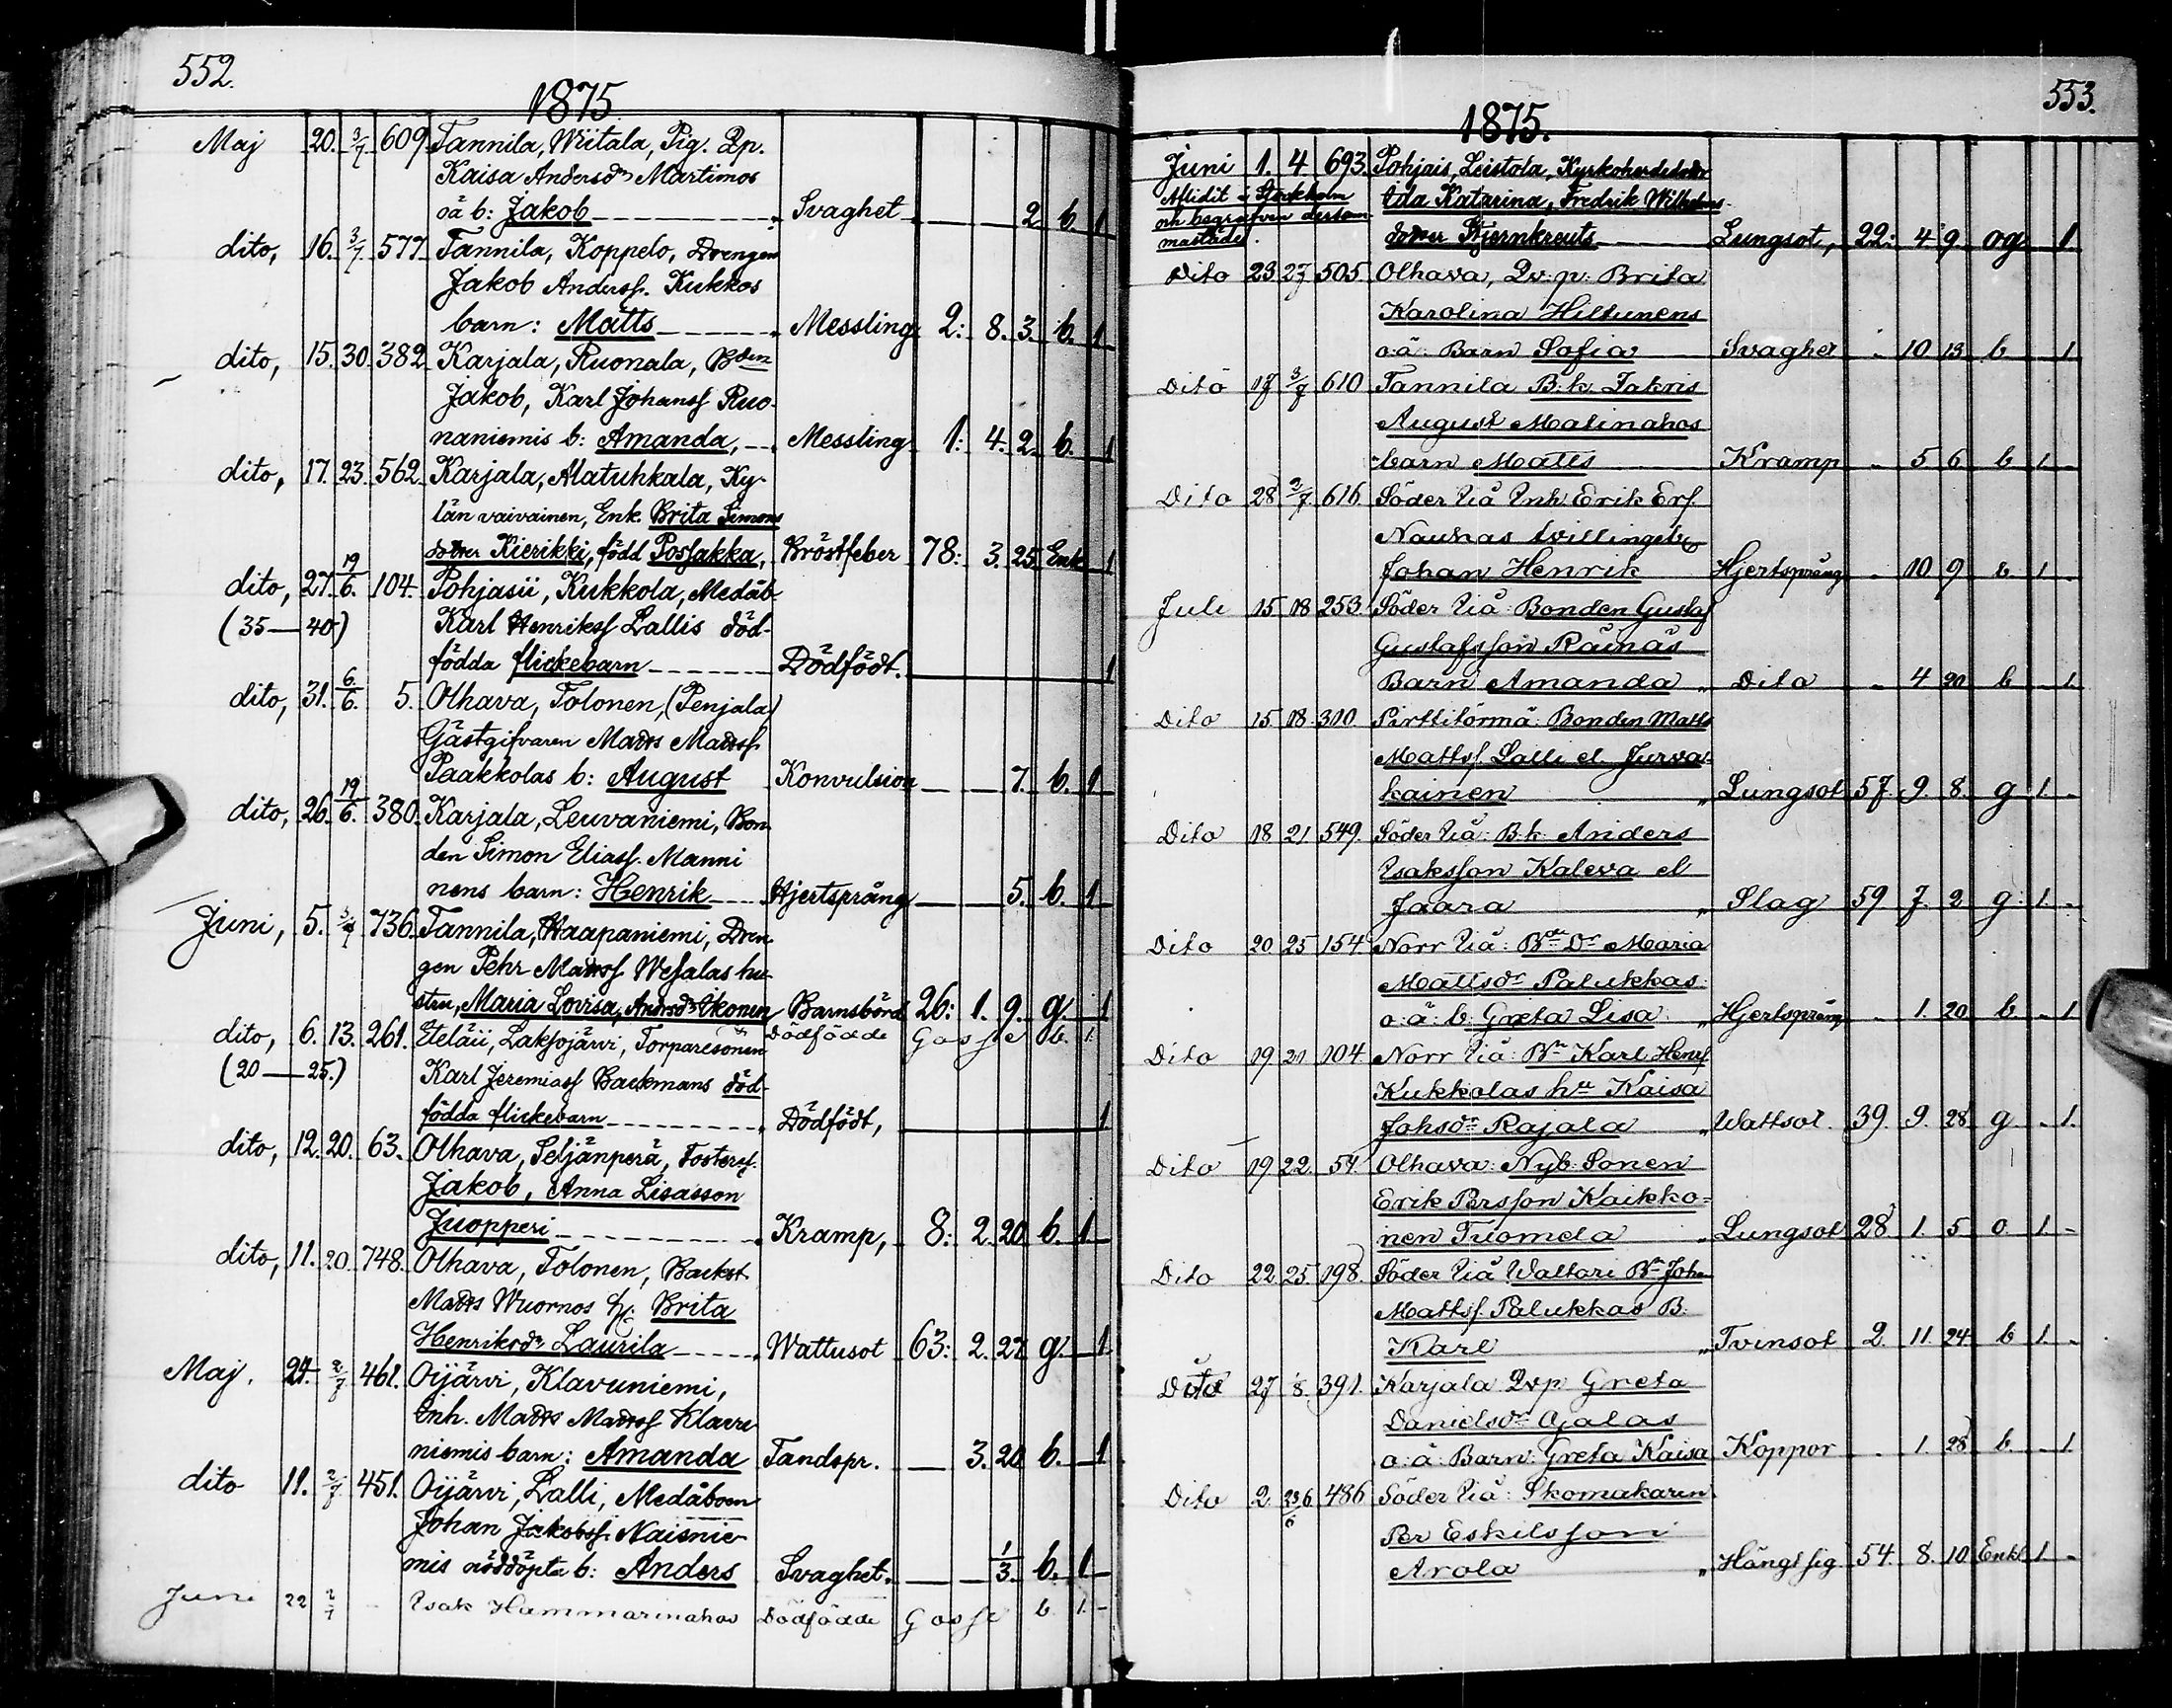 552.
1875
Maj 20. 3/7 609 Tannila, Wiitala, Pig. Qp.
Kaisa Andersdr Martimos
oä b: Jakob Svaghet 2 b. 1
dito, 16. 3/7 577 Tannila, Koppelo, Drengen
Jakob Anderss. Kukkos
barn: Matts Messling 2: 8. 3. b. 1
dito, 15. 30. 382 Karjala, Ruonala, Bden
Jakob, Karl Johanss Ruo-
naniemis b: Amanda, Messling 1: 4. 2. b. 1
dito, 17. 23. 562 Karjala, Alatuhkala, Ky-
län vaivainen, Enk. Brita Simons
dotter Kierikki, född Possakka, Bröstfeber 78: 3. 25 Enk 1
dito, 27. 19/6. 104. Pohjasii, Kukkola, Medåb
(35—40) Karl Henrikss Lallis död-
födda flickebarn Dödfödt. 1
dito, 31. 6/6. 5. Olhava, Tolonen, (Penjala)
Gästgifvaren Matts Mattss
Paakkolas b: August Konvulsion 7. b. 1
dito, 26. 19/6. 380. Karjala, Leuvaniemi, Bon-
den Simon Eliass. Manni
nens barn: Henrik Hjertsprång 5. b. 1
Juni, 5. 3/7 736. Tannila, Haapaniemi, Dren-
gen Pehr Mattss Wesalas hu-
stru, Maria Lovisa, Andersdr Ikonen Barnsbörd 26: 1. 9. g. 1
dito, 6. 13. 261. Eteläii, Laksojärvi, Torparesonen Dödfödde Gosse b. 1.
(20—25.) Karl Jeremiass Backmans död-
födda flickebarn Dödfödt, 1
dito, 12. 20. 63. Olhava, Seljänperä, Fosters.
Jakob, Anna Lisasson
Juopperi Kramp, 8: 2. 20. b. 1
dito, 11. 20. 748. Olhava, Tolonen, Backst.
Matts Wuornos h. Brita
Henriksdr Laurila Wattusot 63: 2. 27 g. 1
Maj. 24. 2/7 461. Oijärvi, Klavuniemi,
Inh. Matts Mattss Klavu
niemis barn: Amanda Tandspr. 3. 20 b. 1
dito 11. 2/7 451. Oijärvi, Lalli, Medåboen
Johan Jakobss. Naisnie-
mis nöddöpta b: Anders Svaghet. 1/3. b. 1
Juni 22 2/7 Isak Hammarinahos Dödfödde Gosse b. 1.
553.
1875.
Juni 1. 4. 693. Pohjais, Leistola, Kyrkoherdedotter
Aflidit i Stockholm Ida Katarina, Fredrik Wilhelms-
och begrafven derstam-
mastädes dotter Stjernkreuts Lungsot, 22: 4 9 og 1.
Dito 23 27 505 Olhava, Qv: p: Brita
Karolina Hiltunens
o:ä: Barn Sofia Svaghet 10 13 b 1
Dito 17 3/7 610 Tannila B.k. Jakris
August Malinahos
barn Matts Kramp 5 6 b 1
Dito 28 2/7 616 Söder Iiå Inh. Erik Ers
Naukas tvillingeb
Johan Henrik Hjertsprång 10 9 b. 1
Juli 15 18 253 Söder Iiå Bonden Gustaf
Gustafsson Räinäs
Barn Amanda Dito 4 20 b 1
Dito 15 18 310 Pirttitörmä Bonden Matts
Mattss. Lalli el. Jurva-
kainen Lungsot 57. 9. 8. g 1.
Dito 18 21 549. Söder Iiå: B.h. Anders
Isaksson Kaleva el
Jaara Slag 59 7. 2 g. 1.
Dito 20 25 154 Norr Iiå: Bde Dr Maria
Mattsdr Palukkas
o:ä: b: Greta Lisa Hjertsprång 1. 20 b. 1
Dito 19 21 104. Norr Iiå: Bn Karl Henrs
Kukkolas hu Kaisa
Johsdr Rajala Wattsot. 39 9. 28 g 1.
Dito 19 22. 54. Olhava: Nyb: Sonen
Erik Persson Kaikko=
nen Tuomela Lungsot 28 1. 5 o. 1.
Dito 22. 25. 198. Söder Iiå Waltari Bn Joh.
Mattss. Palukkas B.
Karl Tvinsot 2. 11. 24. b 1.
Dito 27 8. 391. Karjala Qvp Greta
Danielsdr Ojalas
o:ä: Barn: Greta Kaisa Koppor 1 28 b 1
Dito 2 23/6 486 Söder Iiå: Skomakaren
Per Eskilsson
Arola Hängt sig 54. 8. 10 Enkl 1.